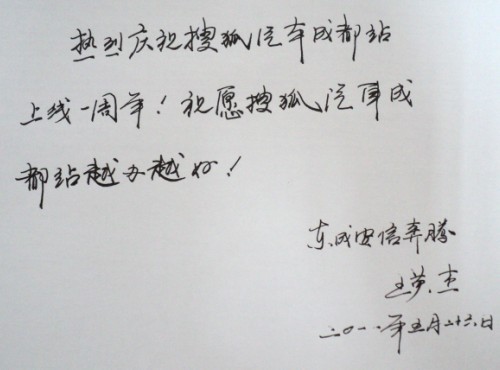 热烈庆祝搜狐汽车成都站
上线一周年！祝愿搜狐汽车成
都站越办越好！
东成安信奔腾
王英杰
二〇一一年五月二十六日